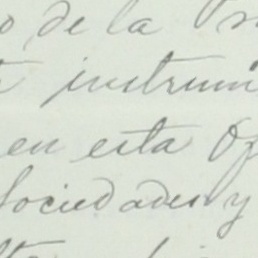 o de la
instrum
en esta Of
Sociedades y